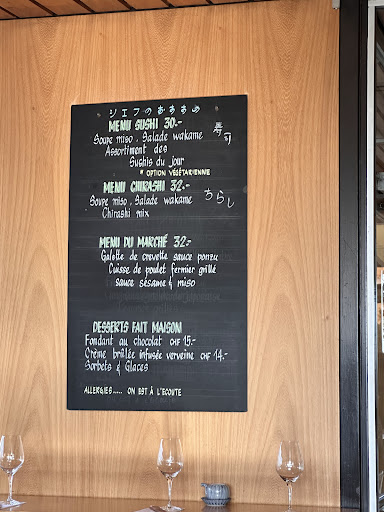 シェフのおすすめ
MENU SUSHI 30.-
Soupe miso, Salade wakame
Assortiment des
Sushis du jour
* OPTION VÉGÉTARIENNE
寿司
MENU CHIRASHI 32.-
Soupe miso, Salade wakame
Chirashi mix
ちらし
MENU DU MARCHÉ 32.-
Galette de crevette sauce ponzu
Cuisse de poulet fermier grillé
sauce sésame & miso
DESSERTS FAIT MAISON
Fondant au chocolat CHF 15.-
Crème brûlée infusée verveine CHF 14.-
Sorbets & Glaces
ALLERGIES..... ON EST À L'ECOUTE